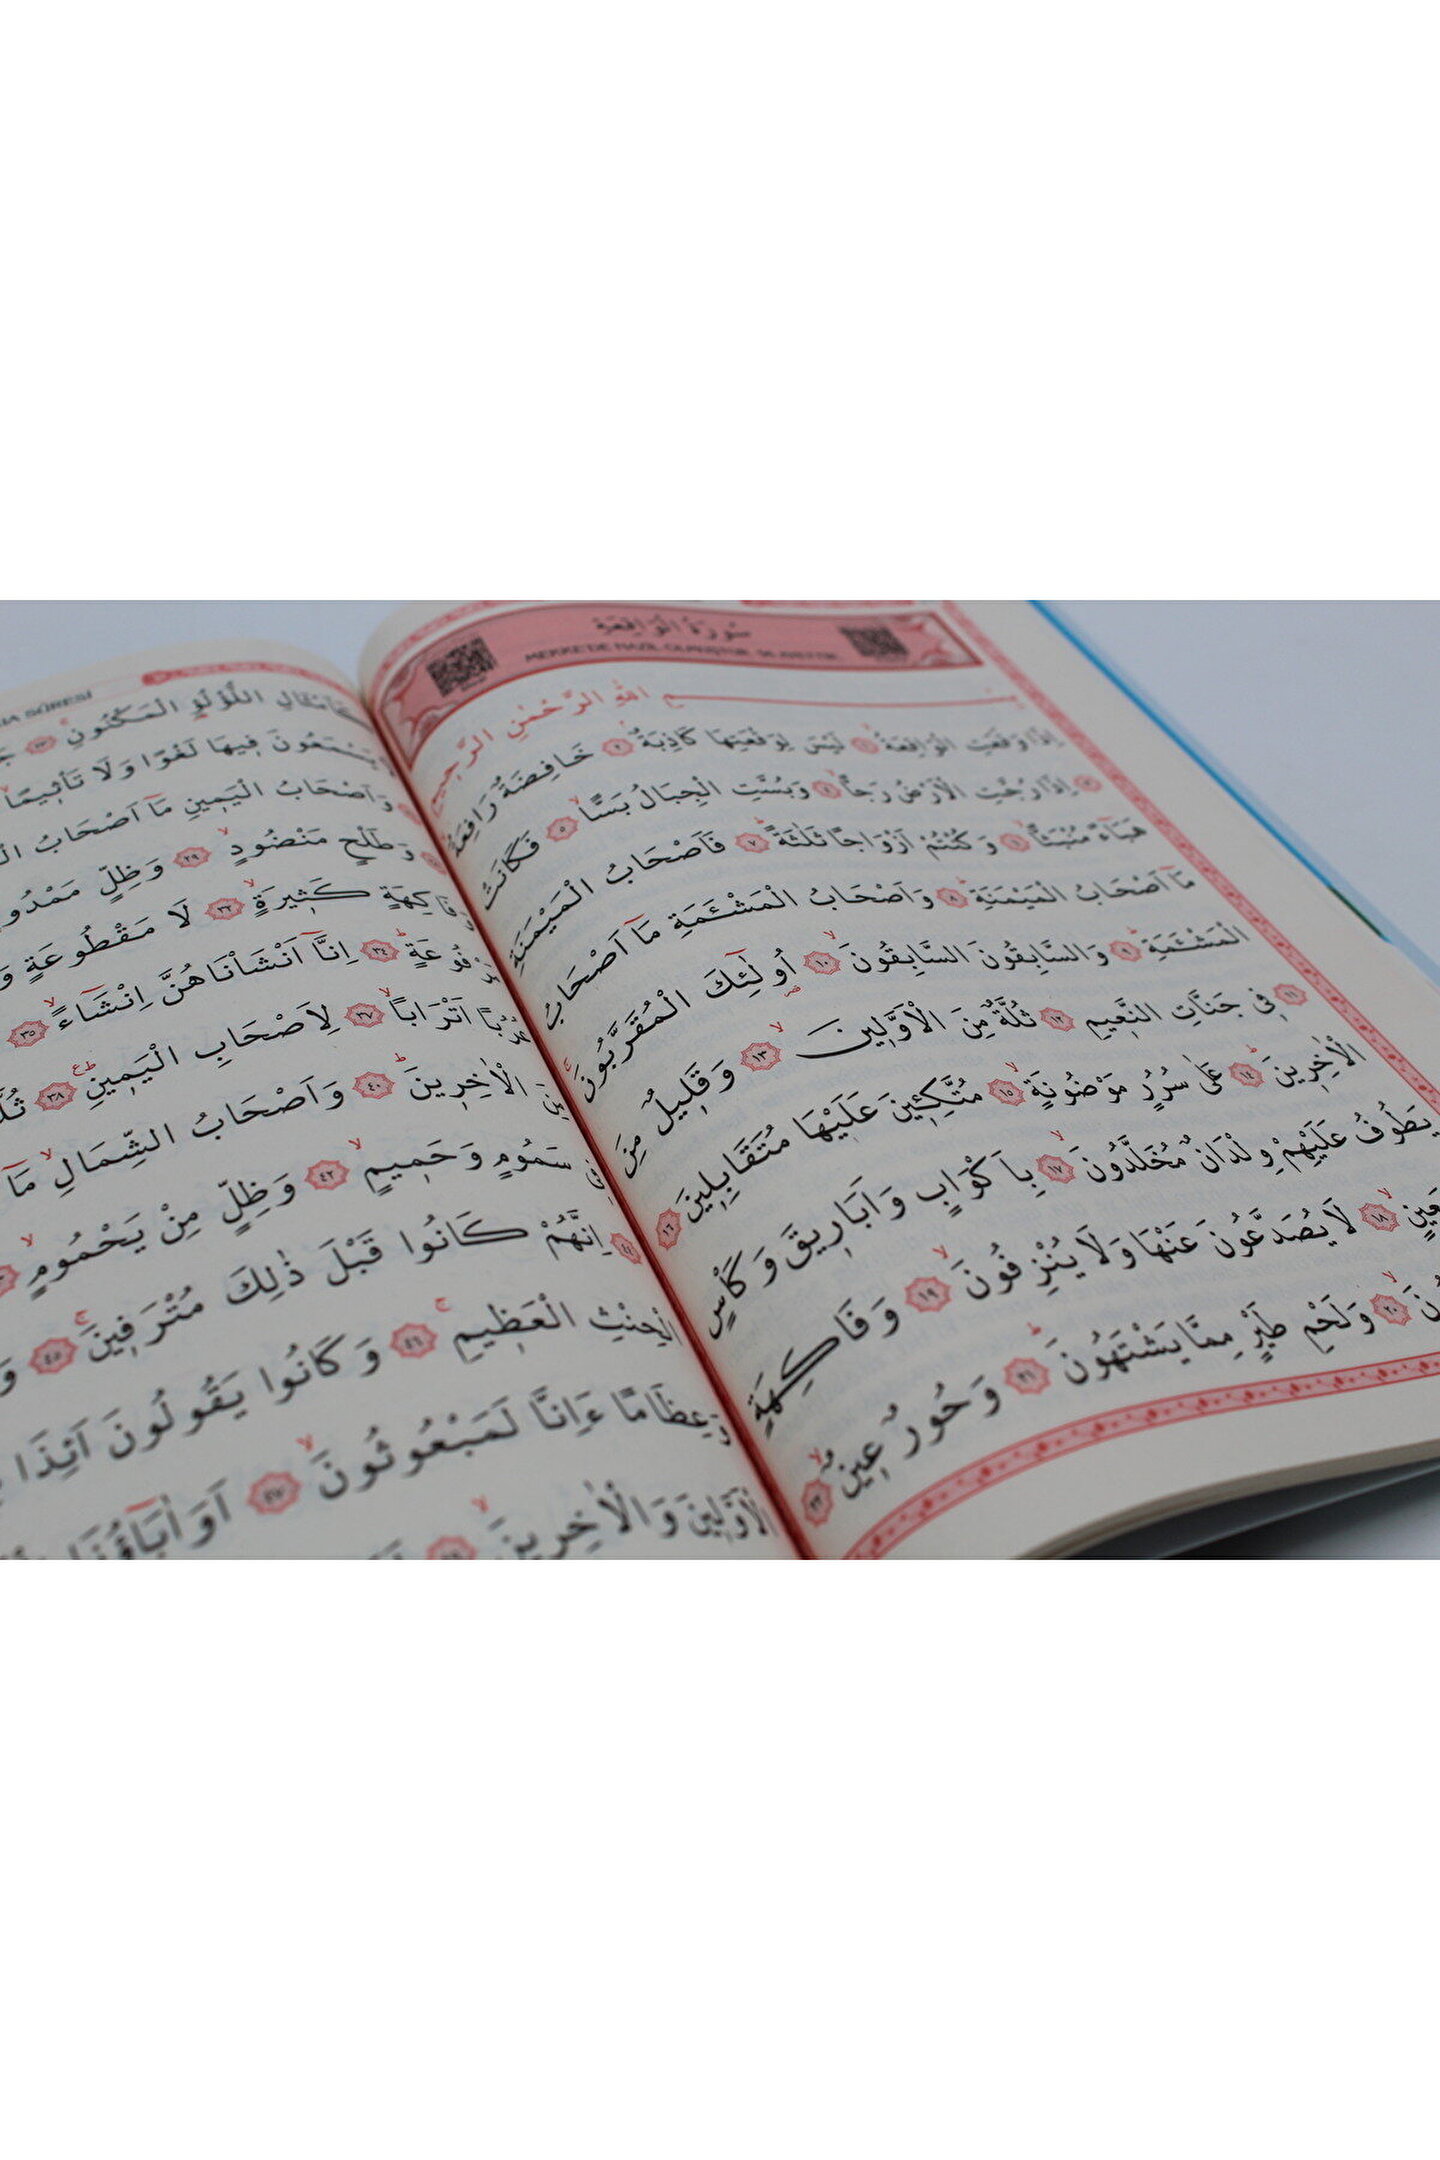 سُورَةُ الْوَاقِعَةِ
MEKKE'DE NAZİL OLMUŞTUR. 96 AYETTİR.
بِسْمِ اللّٰهِ الرَّحْمٰنِ الرَّحِيمِ
اِذَا وَقَعَتِ الْوَاقِعَةُۙ ﴿١﴾ لَيْسَ لِوَقْعَتِهَا كَاذِبَةٌۢ ﴿٢﴾ خَافِضَةٌ رَافِعَةٌ
﴿٣﴾ اِذَا رُجَّتِ الْاَرْضُ رَجًّاۙ ﴿٤﴾ وَبُسَّتِ الْجِبَالُ بَسًّاۙ ﴿٥﴾ فَكَانَتْ
هَبَٓاءً مُنْبَثًّاۙ ﴿٦﴾ وَكُنْتُمْ اَزْوَاجًا ثَلٰثَةًۜ ﴿٧﴾ فَاَصْحَابُ الْمَيْمَنَةِ
مَٓا اَصْحَابُ الْمَيْمَنَةِۜ ﴿٨﴾ وَاَصْحَابُ الْمَشْـَٔمَةِ مَٓا اَصْحَابُ
الْمَشْـَٔمَةِۜ ﴿٩﴾ وَالسَّابِقُونَ السَّابِقُونَۙ ﴿١٠﴾ اُو۬لٰٓئِكَ الْمُقَرَّبُونَۚ
﴿١١﴾ فِي جَنَّاتِ النَّعِيمِ ﴿١٢﴾ ثُلَّةٌ مِنَ الْاَوَّلِينَۙ ﴿١٣﴾ وَقَلِيلٌ مِنَ
الْاٰخِرِينَۜ ﴿١٤﴾ عَلٰى سُرُرٍ مَوْضُونَةٍۙ ﴿١٥﴾ مُتَّكِـِٔينَ عَلَيْهَا مُتَقَابِلِينَ ﴿١٦﴾
يَطُوفُ عَلَيْهِمْ وِلْدَانٌ مُخَلَّدُونَۙ ﴿١٧﴾ بِاَكْوَابٍ وَاَبَارِيقَ وَكَأْسٍ
﴿١٨﴾ لَا يُصَدَّعُونَ عَنْهَا وَلَا يُنْزِفُونَۙ ﴿١٩﴾ وَفَاكِهَةٍ
﴿٢٠﴾ وَلَحْمِ طَيْرٍ مِمَّا يَشْتَهُونَۜ ﴿٢١﴾ وَحُورٌ عِينٌۙ ﴿٢٢﴾
كَاَمْثَالِ اللُّؤْلُؤِ۬ الْمَكْنُونِۚ ﴿٢٣﴾
يَسْمَعُونَ فِيهَا لَغْوًا وَلَا تَأْثِيمًاۙ
وَاَصْحَابُ الْيَمِينِ مَٓا اَصْحَابُ
وَطَلْحٍ مَنْضُودٍۙ ﴿٢٩﴾ وَظِلٍّ
وَفَاكِهَةٍ كَثِيرَةٍۙ ﴿٣٢﴾ لَا مَقْطُوعَةٍ
مَرْفُوعَةٍۜ ﴿٣٤﴾ اِنَّٓا اَنْشَأْنَاهُنَّ اِنْشَٓاءًۙ ﴿٣٥﴾
عُرُبًا اَتْرَابًاۙ ﴿٣٧﴾ لِاَصْحَابِ الْيَمِينِ ﴿٣٨﴾
مِنَ الْاٰخِرِينَۜ ﴿٤٠﴾ وَاَصْحَابُ الشِّمَالِۙ مَٓا
فِي سَمُومٍ وَحَمِيمٍۙ ﴿٤٢﴾ وَظِلٍّ مِنْ يَحْمُومٍۙ
﴿٤٤﴾ اِنَّهُمْ كَانُوا قَبْلَ ذٰلِكَ مُتْرَفِينَۚ ﴿٤٥﴾
الْحِنْثِ الْعَظِيمِۚ ﴿٤٦﴾ وَكَانُوا يَقُولُونَ اَئِذَا
وَعِظَامًا ءَاِنَّا لَمَبْعُوثُونَۙ ﴿٤٧﴾ اَوَاٰبَٓاؤُ۬نَا
الْاَوَّلِينَ وَالْاٰخِرِينَۙ ﴿٤٩﴾